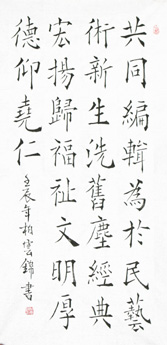 共同編輯為於民藝
術新生洗舊塵經典
宏揚歸福祉文明厚
德仰堯仁
壬辰年柏雲錦書